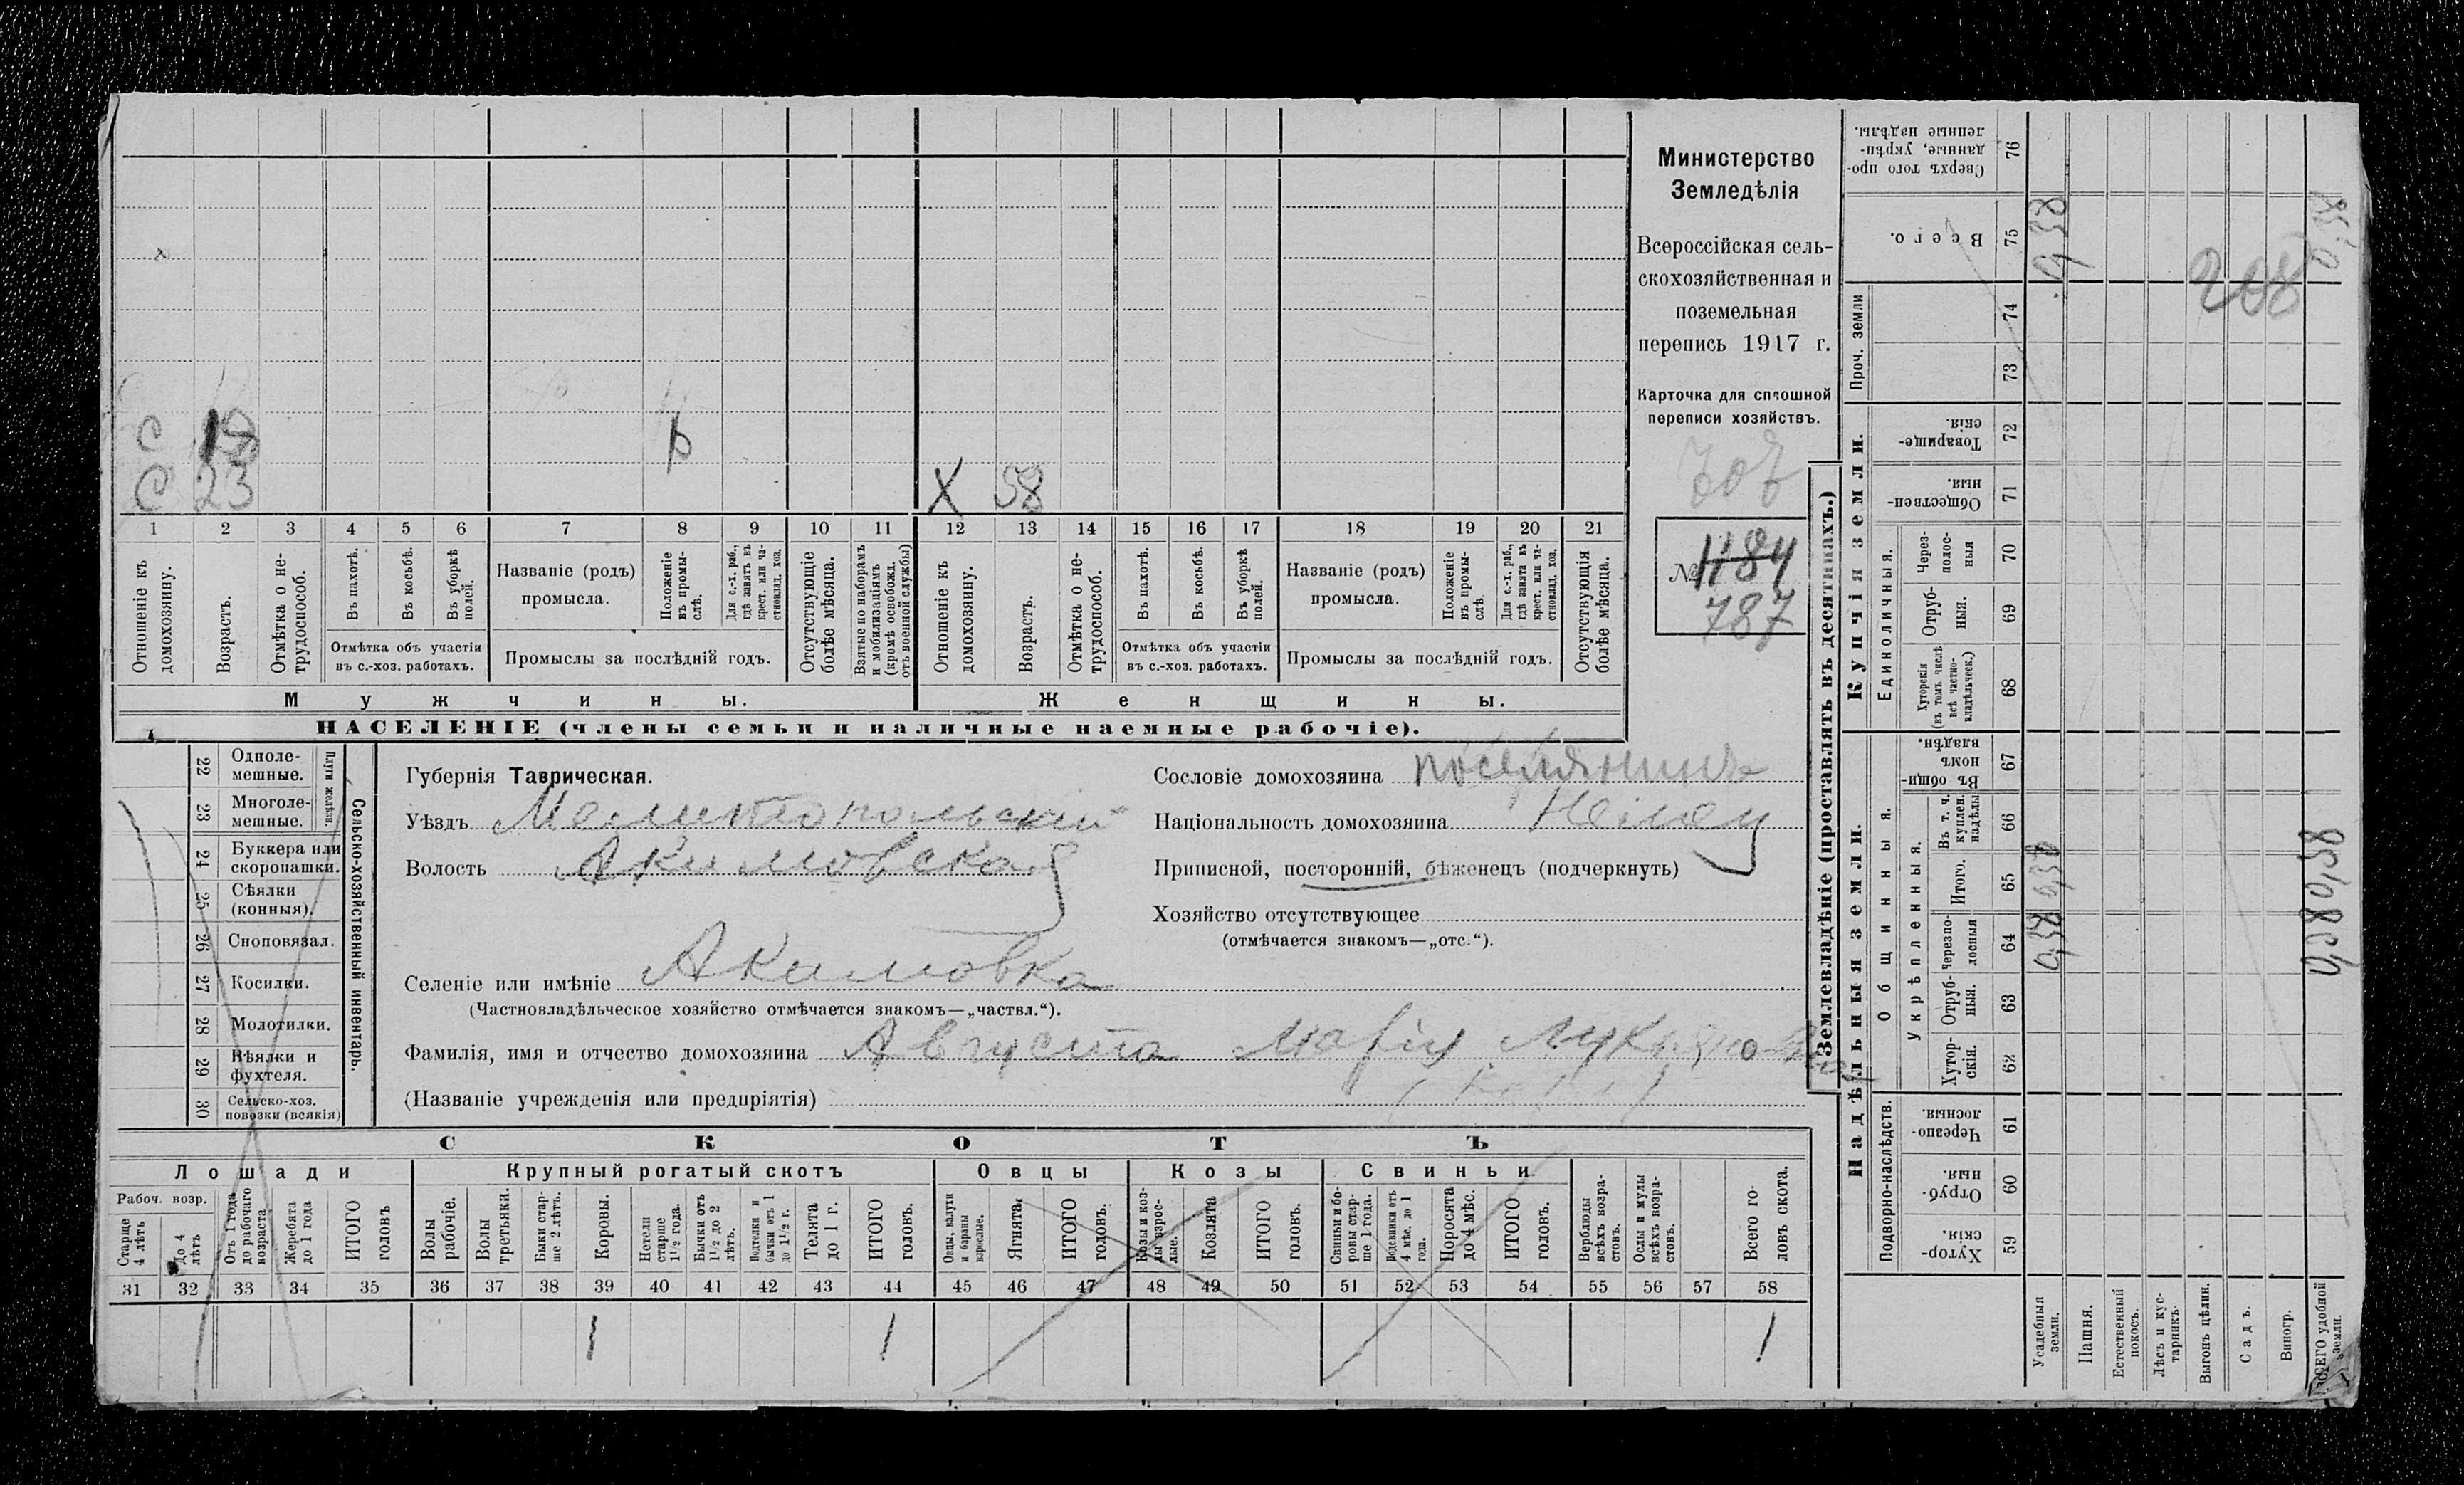 С 18 р
С 23 Х 58
1 2 3 4 5 6 7 8 9 10 11 12 13 14 15 16 17 18 19 20 21
Отношеніе къ домохозяину.
Возрастъ.
Отмѣтка о нетрудоспособ.
Въ пахотѣ.
Въ косьбѣ.
Въ уборкѣ полей.
Отмѣтка объ участіи въ с.-хоз. работахъ.
Названіе (родъ) промысла.
Положеніе въ промыслѣ.
Для с.-х. раб., гдѣ занятъ въ крест. или частновлад. хоз.
Промыслы за послѣдній годъ.
Отсутствующіе болѣе мѣсяца.
Взятые по наборамъ и мобилизаціямъ (кромѣ освобожд. отъ военной службы)
Отношеніе къ домохозяину.
Возрастъ.
Отмѣтка о нетрудоспособ.
Въ пахотѣ.
Въ косьбѣ.
Въ уборкѣ полей.
Отмѣтка объ участіи въ с.-хоз. работахъ.
Названіе (родъ) промысла.
Положеніе въ промыслѣ.
Для с.-х. раб., гдѣ занята въ крест. или частновлад. хоз.
Промыслы за послѣдній годъ.
Отсутствующія болѣе мѣсяца.
Мужчины. Женщины.
НАСЕЛЕНІЕ (члены семьи и наличные наемные рабочіе).
Министерство
Земледѣлія
Всероссійская сель-
скохозяйственная и
поземельная
перепись 1917 г.
Карточка для сплошной
переписи хозяйствъ.
№ 1184
787
22 Одноле-мешные.
23 Многоле-мешные.
Плуги желѣзн.
24 Буккера или скоропашки.
25 Сѣялки (конныя).
26 Сноповязал.
27 Косилки.
28 Молотилки.
29 Вѣялки и фухтеля.
30 Сельско-хоз. повозки (всякія)
Сельско-хозяйственный инвентарь.
Губернія Таврическая.
Уѣздъ Мелитопольский
Волость Акимовская
Селеніе или имѣніе Акимовка
(Частновладѣльческое хозяйство отмѣчается знакомъ—„частвл.“).
Фамилія, имя и отчество домохозяина Августа Марія Лукьяновна
(Названіе учрежденія или предпріятія)
Сословіе домохозяина поселянинъ
Національность домохозяина Нѣмец
Приписной, посторонній, бѣженецъ (подчеркнуть)
Хозяйство отсутствующее
(отмѣчается знакомъ—„отс.“).
СКОТЪ
Лошади Крупный рогатый скотъ Овцы Козы Свиньи
Рабоч. возр.
Старше 4 лѣтъ
До 4 лѣтъ
Отъ 1 года до рабочаго возраста
Жеребята до 1 года
ИТОГО головъ
Волы рабочіе.
Волы третьяки.
Быки старше 2 лѣтъ.
Коровы.
Нетели старше 1½ года.
Бычки отъ 1½ до 2 лѣтъ.
Подтелки и бычки отъ 1 до 1½ г.
Телята до 1 г.
ИТОГО головъ.
Овцы, валухи и бараны взрослые.
Ягнята.
ИТОГО головъ.
Козы и козлы взрослые.
Козлята
ИТОГО головъ.
Свиньи и боровы старше 1 года.
Подсвинки отъ 4 мѣс. до 1 года.
Поросята до 4 мѣс.
ИТОГО головъ.
Верблюды всѣхъ возрастовъ.
Ослы и мулы всѣхъ возрастовъ.
Всего головъ скота.
31 32 33 34 35 36 37 38 39 40 41 42 43 44 45 46 47 48 49 50 51 52 53 54 55 56 57 58
1 1 1
Землевладѣніе (проставлять въ десятинахъ.)
Надѣльныя земли. Купчія земли. Проч. земли
Подворно-наслѣдств.
Общинныя.
Укрѣпленныя.
Единоличныя.
Хуторскія. 59
Отрубныя. 60
Черезполосныя. 61
Хуторскія. 62
Отрубныя. 63
Черезполосныя 64
Итого. 65
Въ т. ч. куплен. надѣлы 66
Въ общинномъ владѣн. 67
Хуторскія (въ томъ числѣ всѣ частновладѣльческ.) 68
Отрубныя. 69
Черезполосныя 70
Общественныя. 71
Товарищескія. 72
73
74
Всего. 75
Сверхъ того проданные, укрѣпленные надѣлы. 76
Усадебныя земли. 0,38 0,38 0,38
Пашня.
Естественный покосъ.
Лѣсъ и кустарникъ.
Выгонъ цѣлин.
Садъ.
Виногр.
ВСЕГО удобной земли. 0,38 0,38 0,38
208